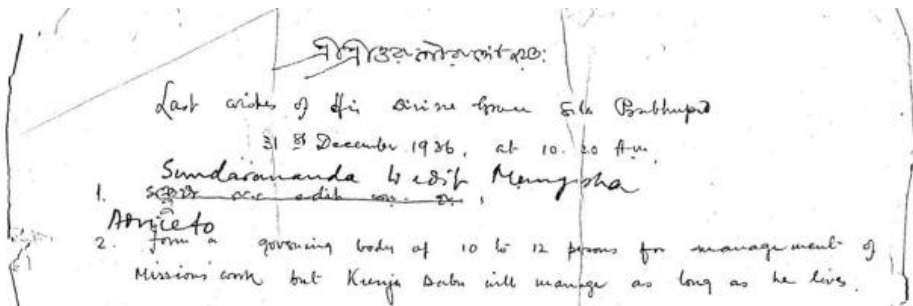 শ্রীশ্রীগুরুগৌরাঙ্গৌ জয়তঃ
Last wishes of His Divine Grace Srila Prabhupad
31st December 1936, at 10.20 Am.
Sundarananda to edit
1. edit
Advice to
2. form a governing body of 10 to 12 persons for management of
Missions work but Kunja Babu will manage as long as he lives.